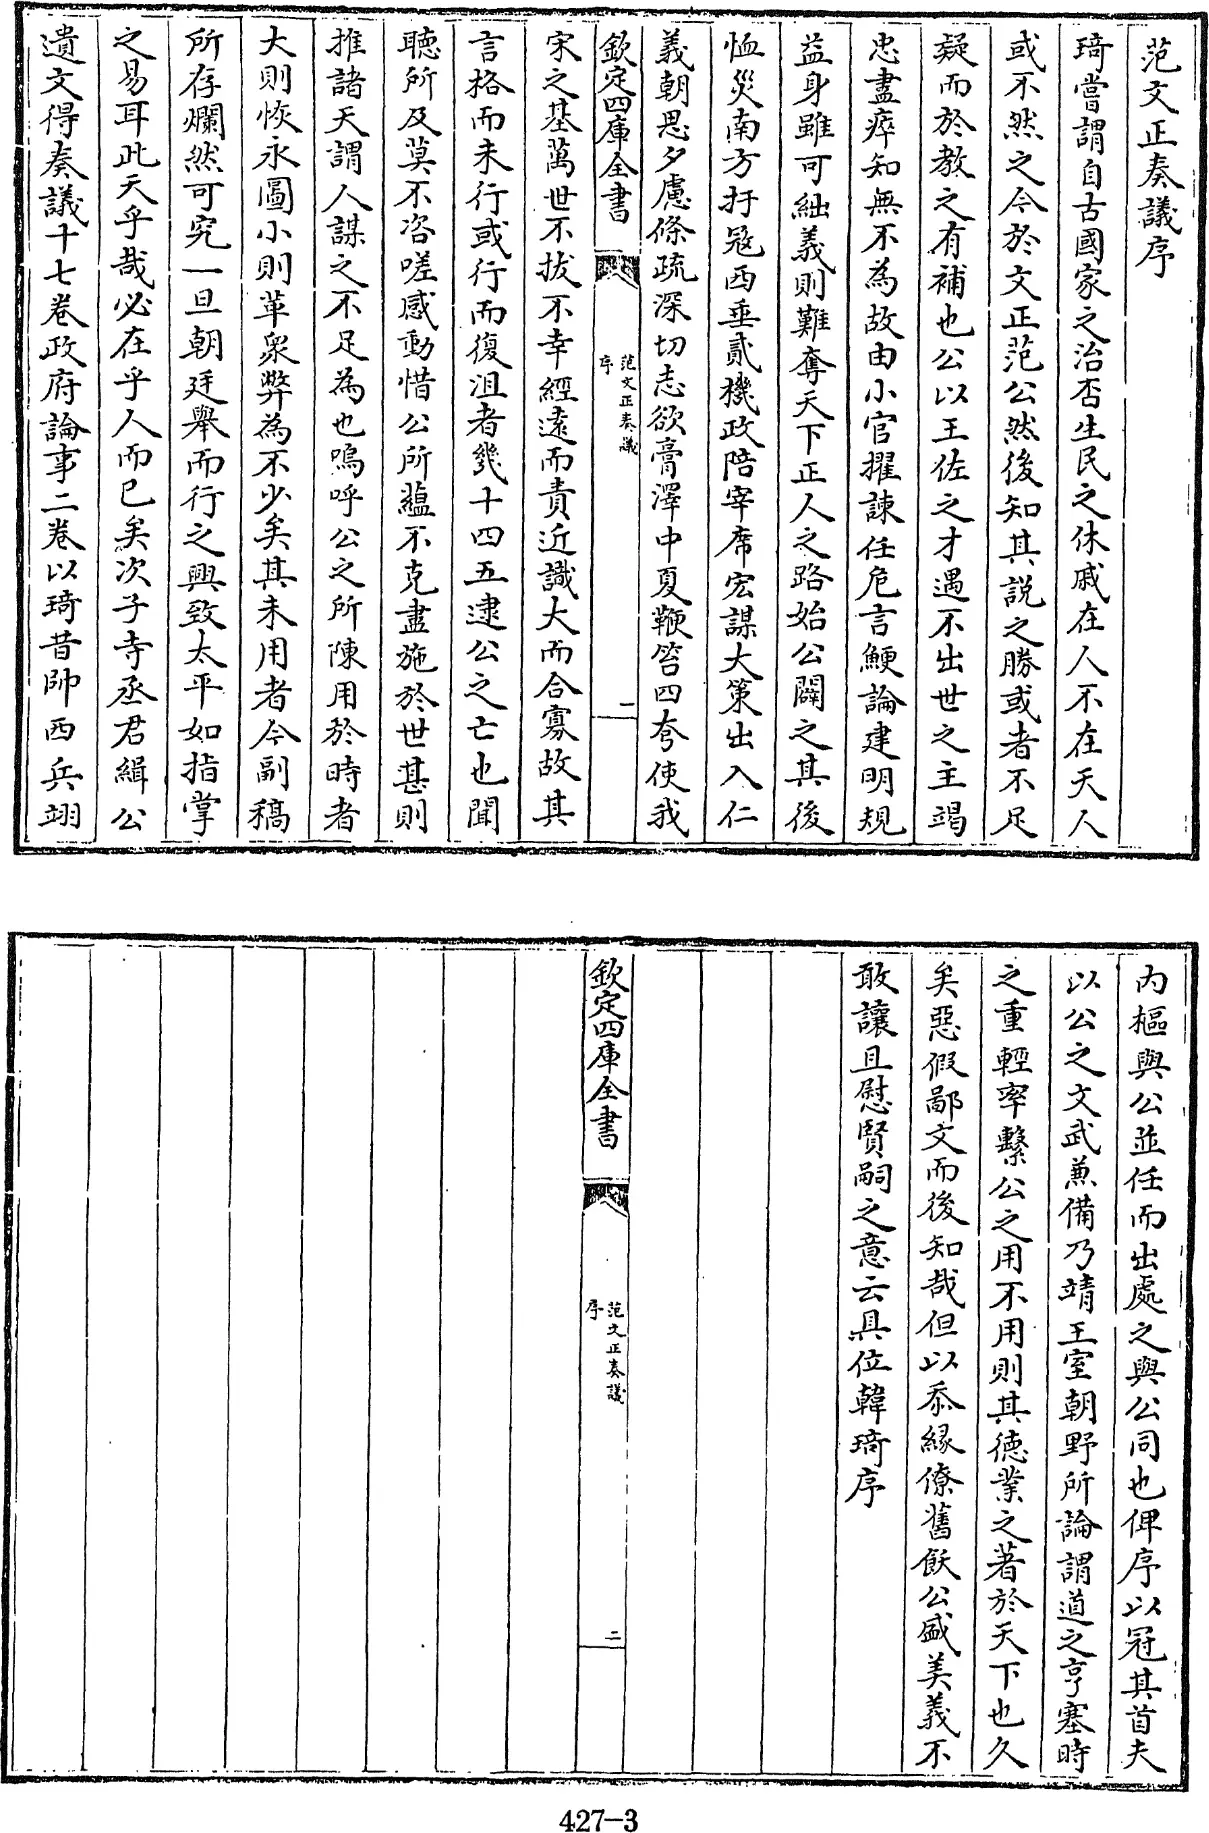 范文正奏議序
琦嘗謂自古國家之治否生民之休戚在人不在天人
或不然之今於文正范公然後知其説之勝或者不足
疑而於教之有補也公以王佐之才遇不出世之主竭
忠盡瘁知無不為故由小官擢諫任危言鯁論建明規
益身雖可絀義則難奪天下正人之路始公闢之其後
恤災南方扞冦西垂貳機政陪宰席宏謀大策出入仁
義朝思夕慮條疏深切志欲膏澤中夏鞭笞四夸使我
欽定四庫全書
范文正奏議
序
一
宋之基萬世不拔不幸經遠而責近識大而合寡故其
言格而未行或行而復沮者幾十四五逮公之亡也聞
聽所及莫不咨嗟感動惜公所藴不克盡施於世甚則
推諸天謂人謀之不足為也嗚呼公之所陳用於時者
大則恢永圖小則革衆弊為不少矣其未用者今副稿
所存爛然可究一旦朝廷舉而行之興致太平如指掌
之易耳此天乎哉必在乎人而已矣次子寺丞君緝公
遺文得奏議十七卷政府論事二卷以琦昔帥西兵翊
内樞與公並任而出處之與公同也俾序以冠其首夫
以公之文武兼備乃靖王室朝野所論謂道之亨塞時
之重輕率繫公之用不用則其徳業之著於天下也久
矣惡假鄙文而後知哉但以忝縁僚舊飫公盛美義不
敢讓且慰賢嗣之意云具位韓琦序
欽定四庫全書
范文正奏議
序
二
427-3